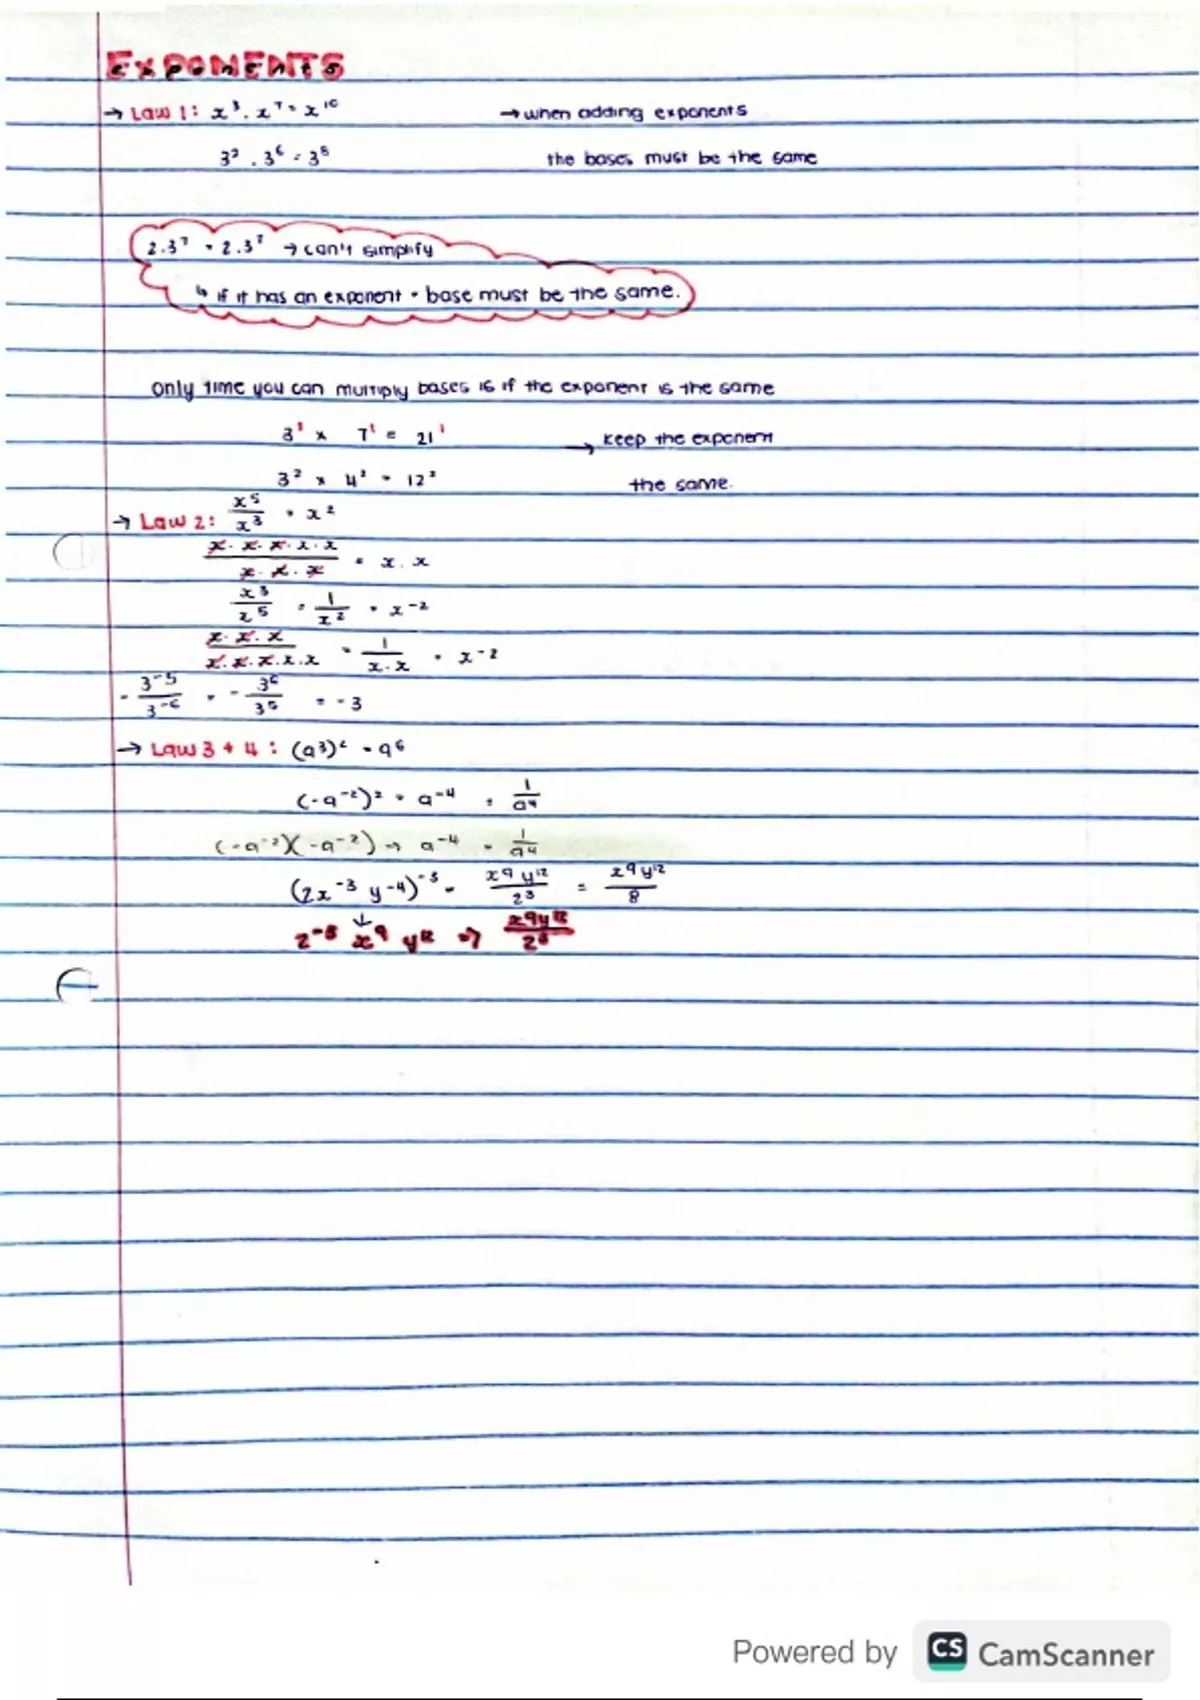 EXPONENTS
→ Law 1: x³ . x⁷ = x¹⁰ → when adding exponents
3² . 3⁶ = 3⁸ the bases must be the same
2.3⁷ = 2.3⁷ → can't simplify
↳ if it has an exponent • base must be the same.
only time you can multiply bases is if the exponent is the same
3¹ x 7¹ = 21¹ → keep the exponent
3² x 4² = 12² the same.
→ Law 2: x⁵/x³ = x²
x.x.x.x.x/x.x.x = x.x
x³/x⁵ = 1/x² = x⁻²
x.x.x/x.x.x.x.x = 1/x.x = x⁻²
- 3⁻⁵/3⁻⁶ = - 3⁶/3⁵ = -3
→ Law 3 + 4: (a³)² = a⁶
(-a⁻²)² = a⁻⁴ = 1/a⁴
(-a⁻²)(-a⁻²) → a⁻⁴ = 1/a⁴
(2x⁻³ y⁻⁴)⁻³ = x⁹y¹²/2³ = x⁹y¹²/8
↓
2⁻³ x⁹ y¹² => x⁹y¹²/2³
Powered by CS CamScanner